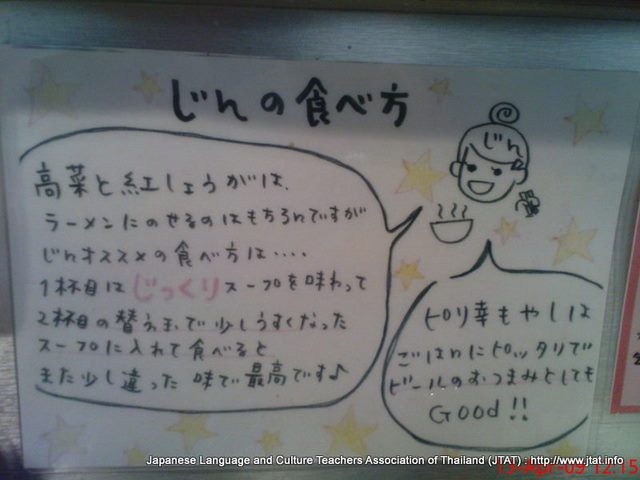 じんの食べ方
じん
高菜と紅しょうがは、
ラーメンにのせるのはもちろんですが
じんオススメの食べ方は‥‥
1杯目はじっくりスープを味わって
2杯目の替え玉で少しうすくなった
スープに入れて食べると
また少し違った味で最高です♪
ピリ辛もやしは
ごはんにピッタリで
ビールのおつまみとしても
GOOd!!
Japanese Language and Culture Teachers Association of Thailand (JTAT) : http://www.jtat.info
13-Apr-09 12:15